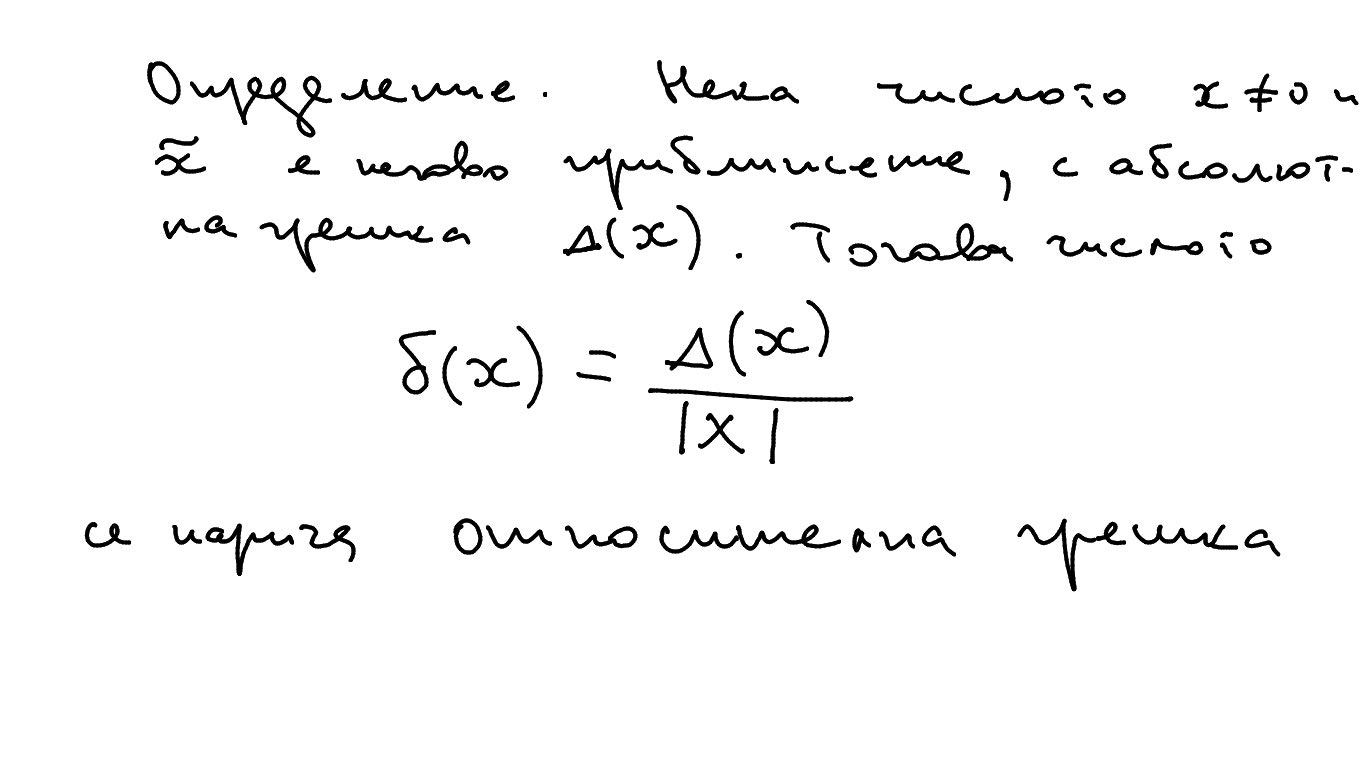 Определение. Нека числото x ≠ 0 и
x̃ е негово приближение, с абсолют-
на грешка Δ(x). Тогава числото
δ(x) = Δ(x) / |x|
се нарича относителна грешка